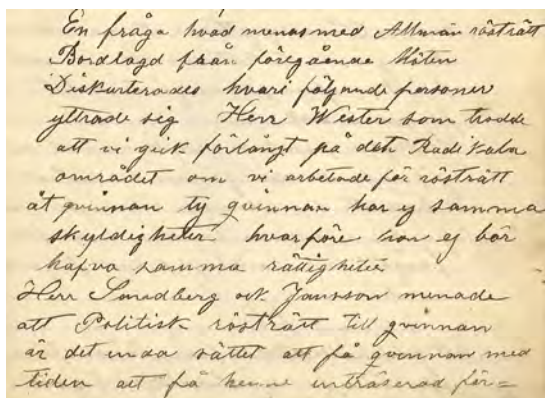 En fråga hvad menas med Allmän rösträtt
Bordlagd från föregående Möten
Diskurterades hvari följande personer
yttrade sig Herr Wester som trodde
att vi gick förlångt på det Radikala
området om vi arbetade för rösträtt
åt qvinnan ty qvinnan har ej samma
skyldigheter hvarföre hon ej bör
hafva samma rättigheter
Herr Smedberg och Jansson menade
att Politisk rösträtt till qvinnan
är det enda sättet att få qvinnan med
tiden att få henne inträserad för=